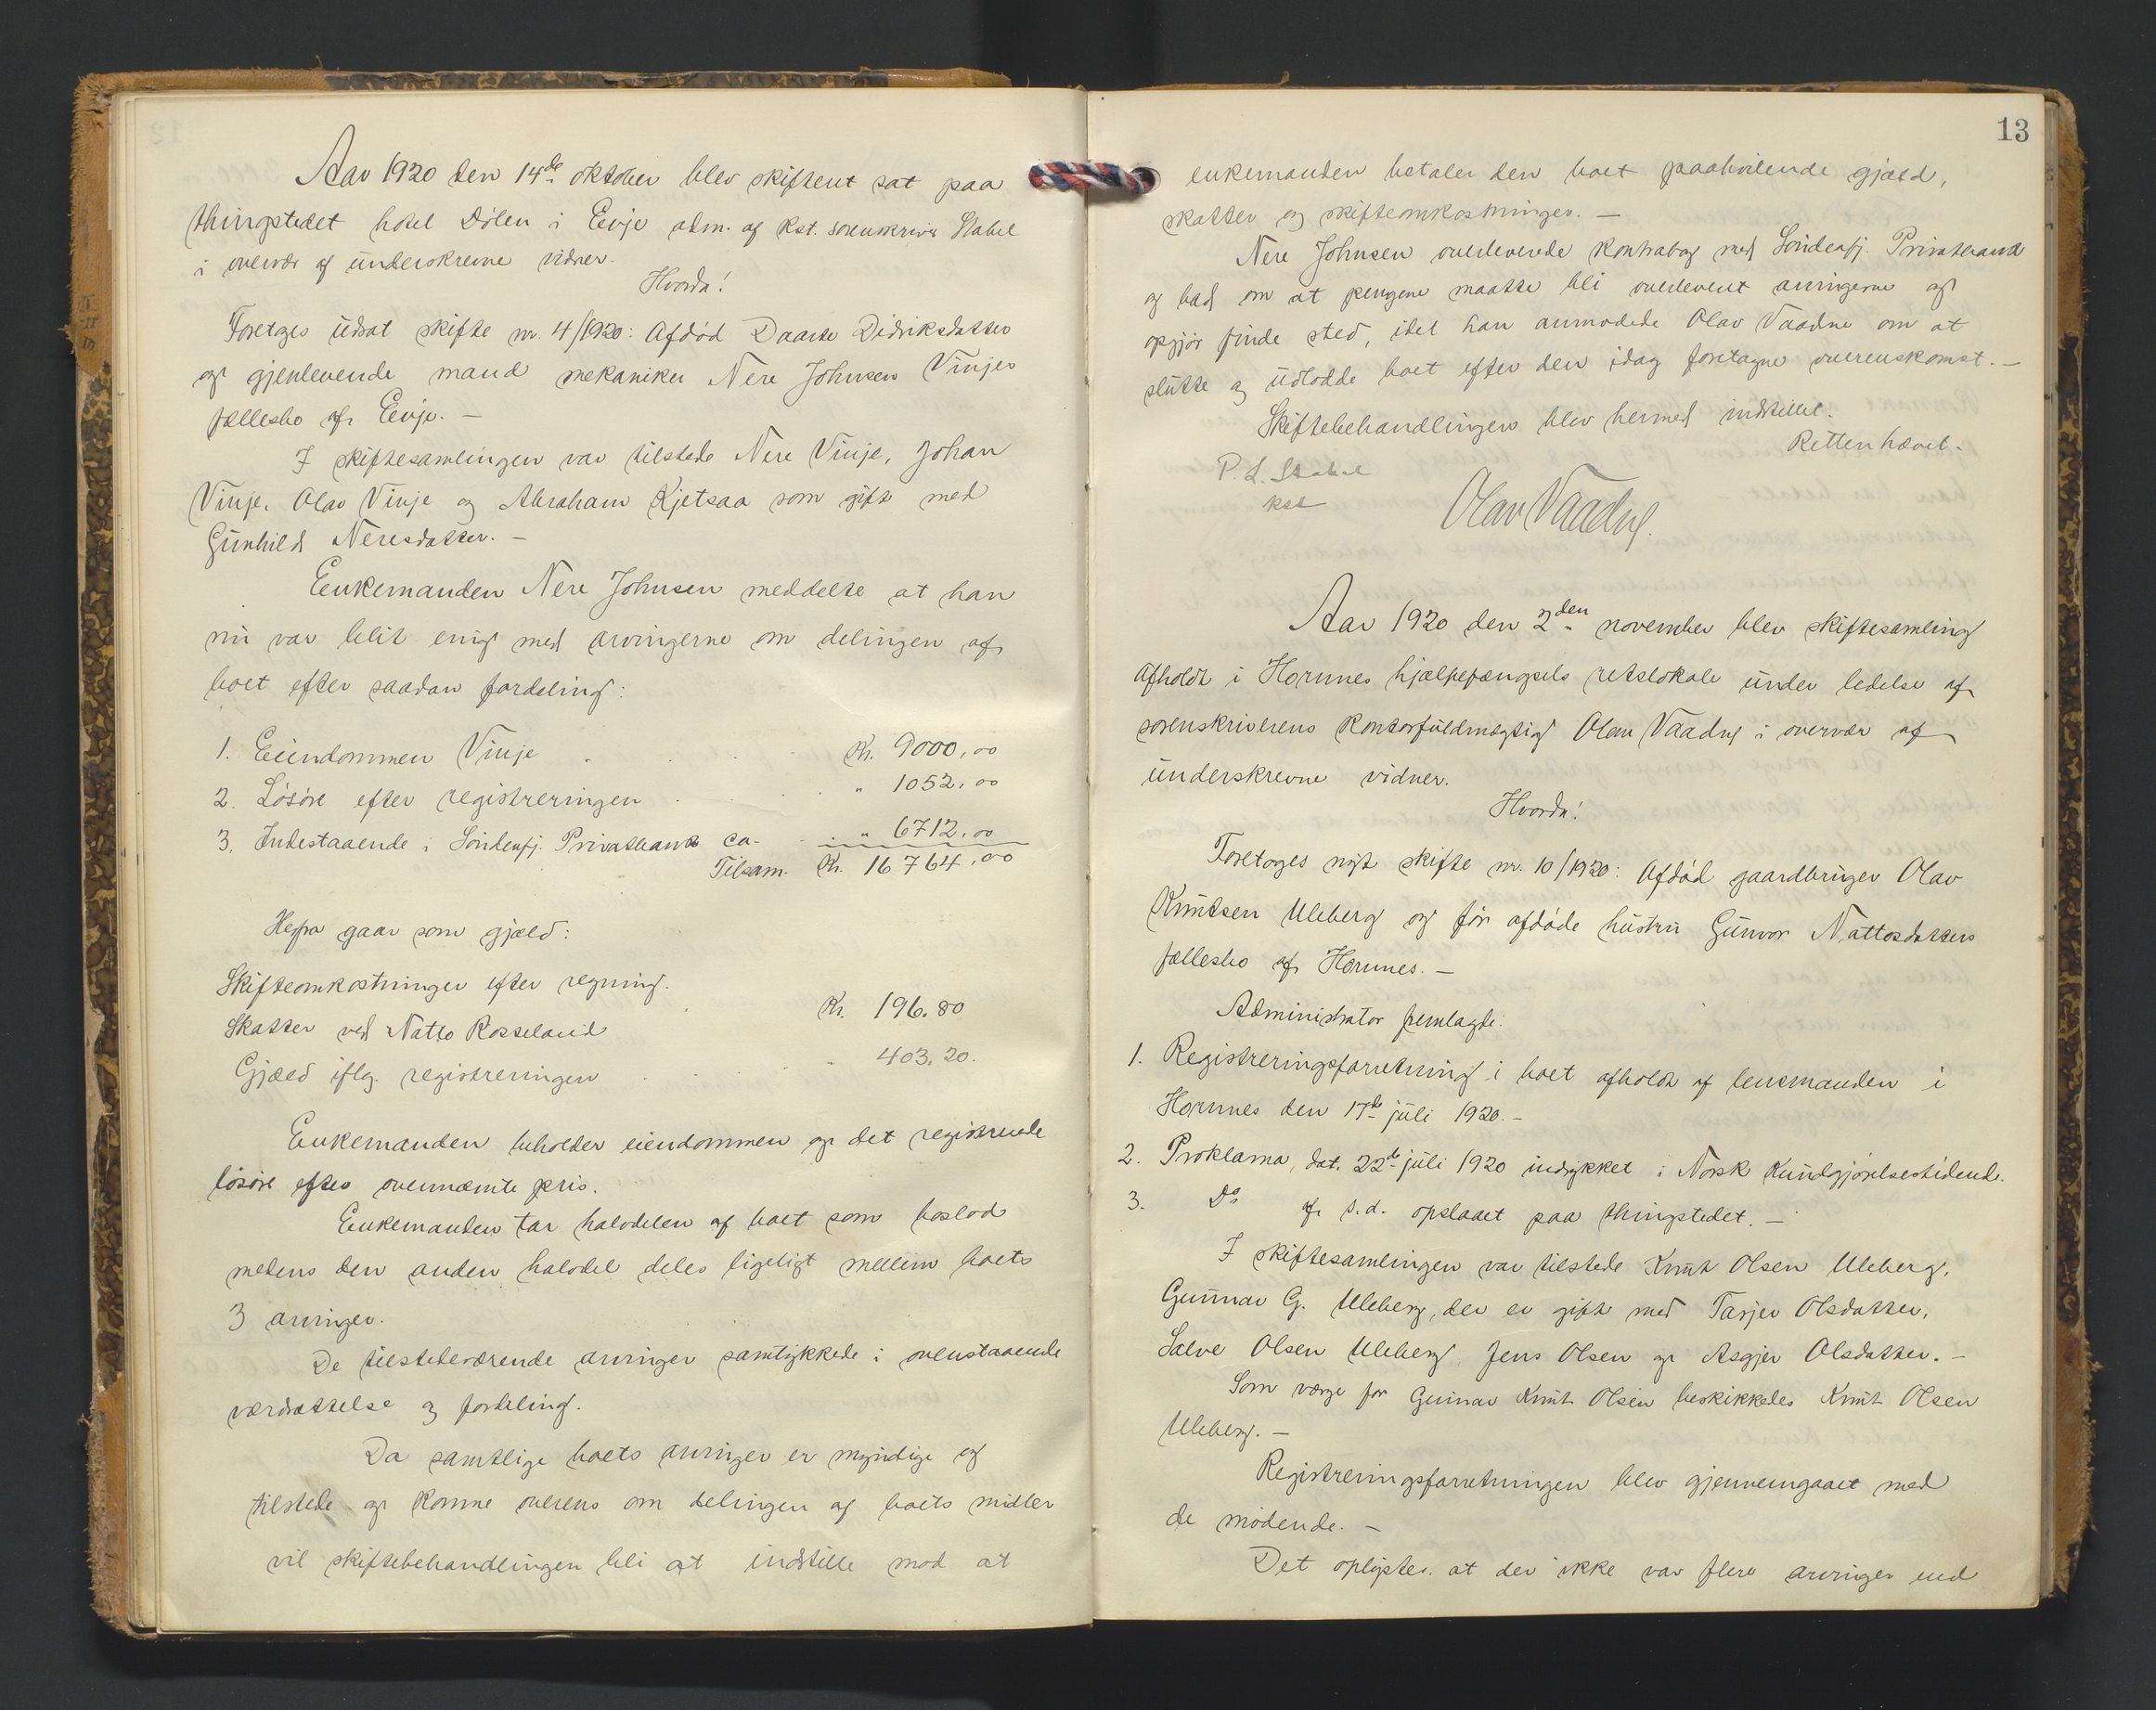 Aar 1920 den 14de oktober blev skifteret sat paa
thingstedet hotel Dölen i Evje adm. af kst. sorenskriver Stabel
i overvær af underskrevne vidner.
Hvorda!
Foretages utsat skifte nr. 4/1920: Afdöd Daarte Didriksdatter
og gjenlevende mand mekaniker Nere Johnsen Vinjes
fællesbo af Evje. —
I skiftesamlingen var tilstede Nere Vinje, Johan
Vinje, Olav Vinje og Abraham Kjetsaa som gift med
Gunhild Neresdatter. —
Enkemanden Nere Johnsen meddelte at han
nu var blit enig med arvingerne om delingen af
boet efter saadan fordeling:
1. Eiendommen Vinje . . . Kr. 9000,00
2. Lösöre efter registreringen . . . " 1052,00
3. Indestaaende i Söndenfj. Privatbank ca. . " 6712,00
Tilsam. Kr. 16764,00
Herfra gaar som gjæld:
Skifteomkostninger efter regning.
Skatter ved Natto Rosseland . Kr. 196.80
Gjæld iflg. registreringen . . . - 403.20.
Enkemanden beholder eiendommen og det registrerede
lösöre efter ovennævnte pris.
Enkemanden tar halvdelen af boet som boslod
medens den anden halvdel deles ligeligt mellem boets
3 arvinger.
De tilstedeværende arvinger samtykkede i ovenstaaende
værdsættelse og fordeling.
Da samtlige boets arvinger er myndige og
tilstede og komne overens om delingen af boets midler
vil skiftebehandlingen bli at indstille mod at
13
enkemanden betaler den boet paahvilende gjæld,
skatter og skifteomkostninger. —
Nere Johnsen overleverede kontrabog med Söndenfj. Privatbank
og bad om at pengene maatte bli overlevert arvingerne og
opgjör finde sted, idet han anmodede Olav Vaadne om at
slutte og utlodde boet efter den idag foretagne overenskomst. —
Skiftebehandlingen blev hermed indstillet.
Retten hævet.
P. L. Stabel
kst
Olav Vaadne.
Aar 1920 den 2den november blev skiftesamling
afholdt i Hornnes hjælpefængsels retslokale under ledelse af
sorenskriverens kontorfuldmægtig Olav Vaadne i overvær af
underskrevne vidner.
Hvorda!
Foretages nyt skifte nr. 10/1920: Afdöd gaardbruger Olav
Knutsen Uleberg og för afdöde hustru Gunvor Nattosdatters
fællesbo af Hornnes. —
Administrator fremlagde:
1. Registreringsforretning i boet afholdt af lensmanden i
Hornnes den 17de juli 1920. —
2. Proklama, dat. 22de juli 1920 indrykket i Norsk Kundgjörelsestidende.
3. Do af s.d. opslaaet paa thingstedet. —
I skiftesamlingen var tilstede Knut Olsen Uleberg,
Gunnar G. Uleberg, der er gift med Tarjer Olsdatter,
Salve Olsen Uleberg, Jens Olsen og Asgjer Olsdatter. —
Som værge for Gunnar Knut Olsen beskikkedes Knut Olsen
Uleberg. —
Registreringsforretningen blev gjennemgaaet med
de mödende. —
Det oplystes at der ikke var flere arvinger end